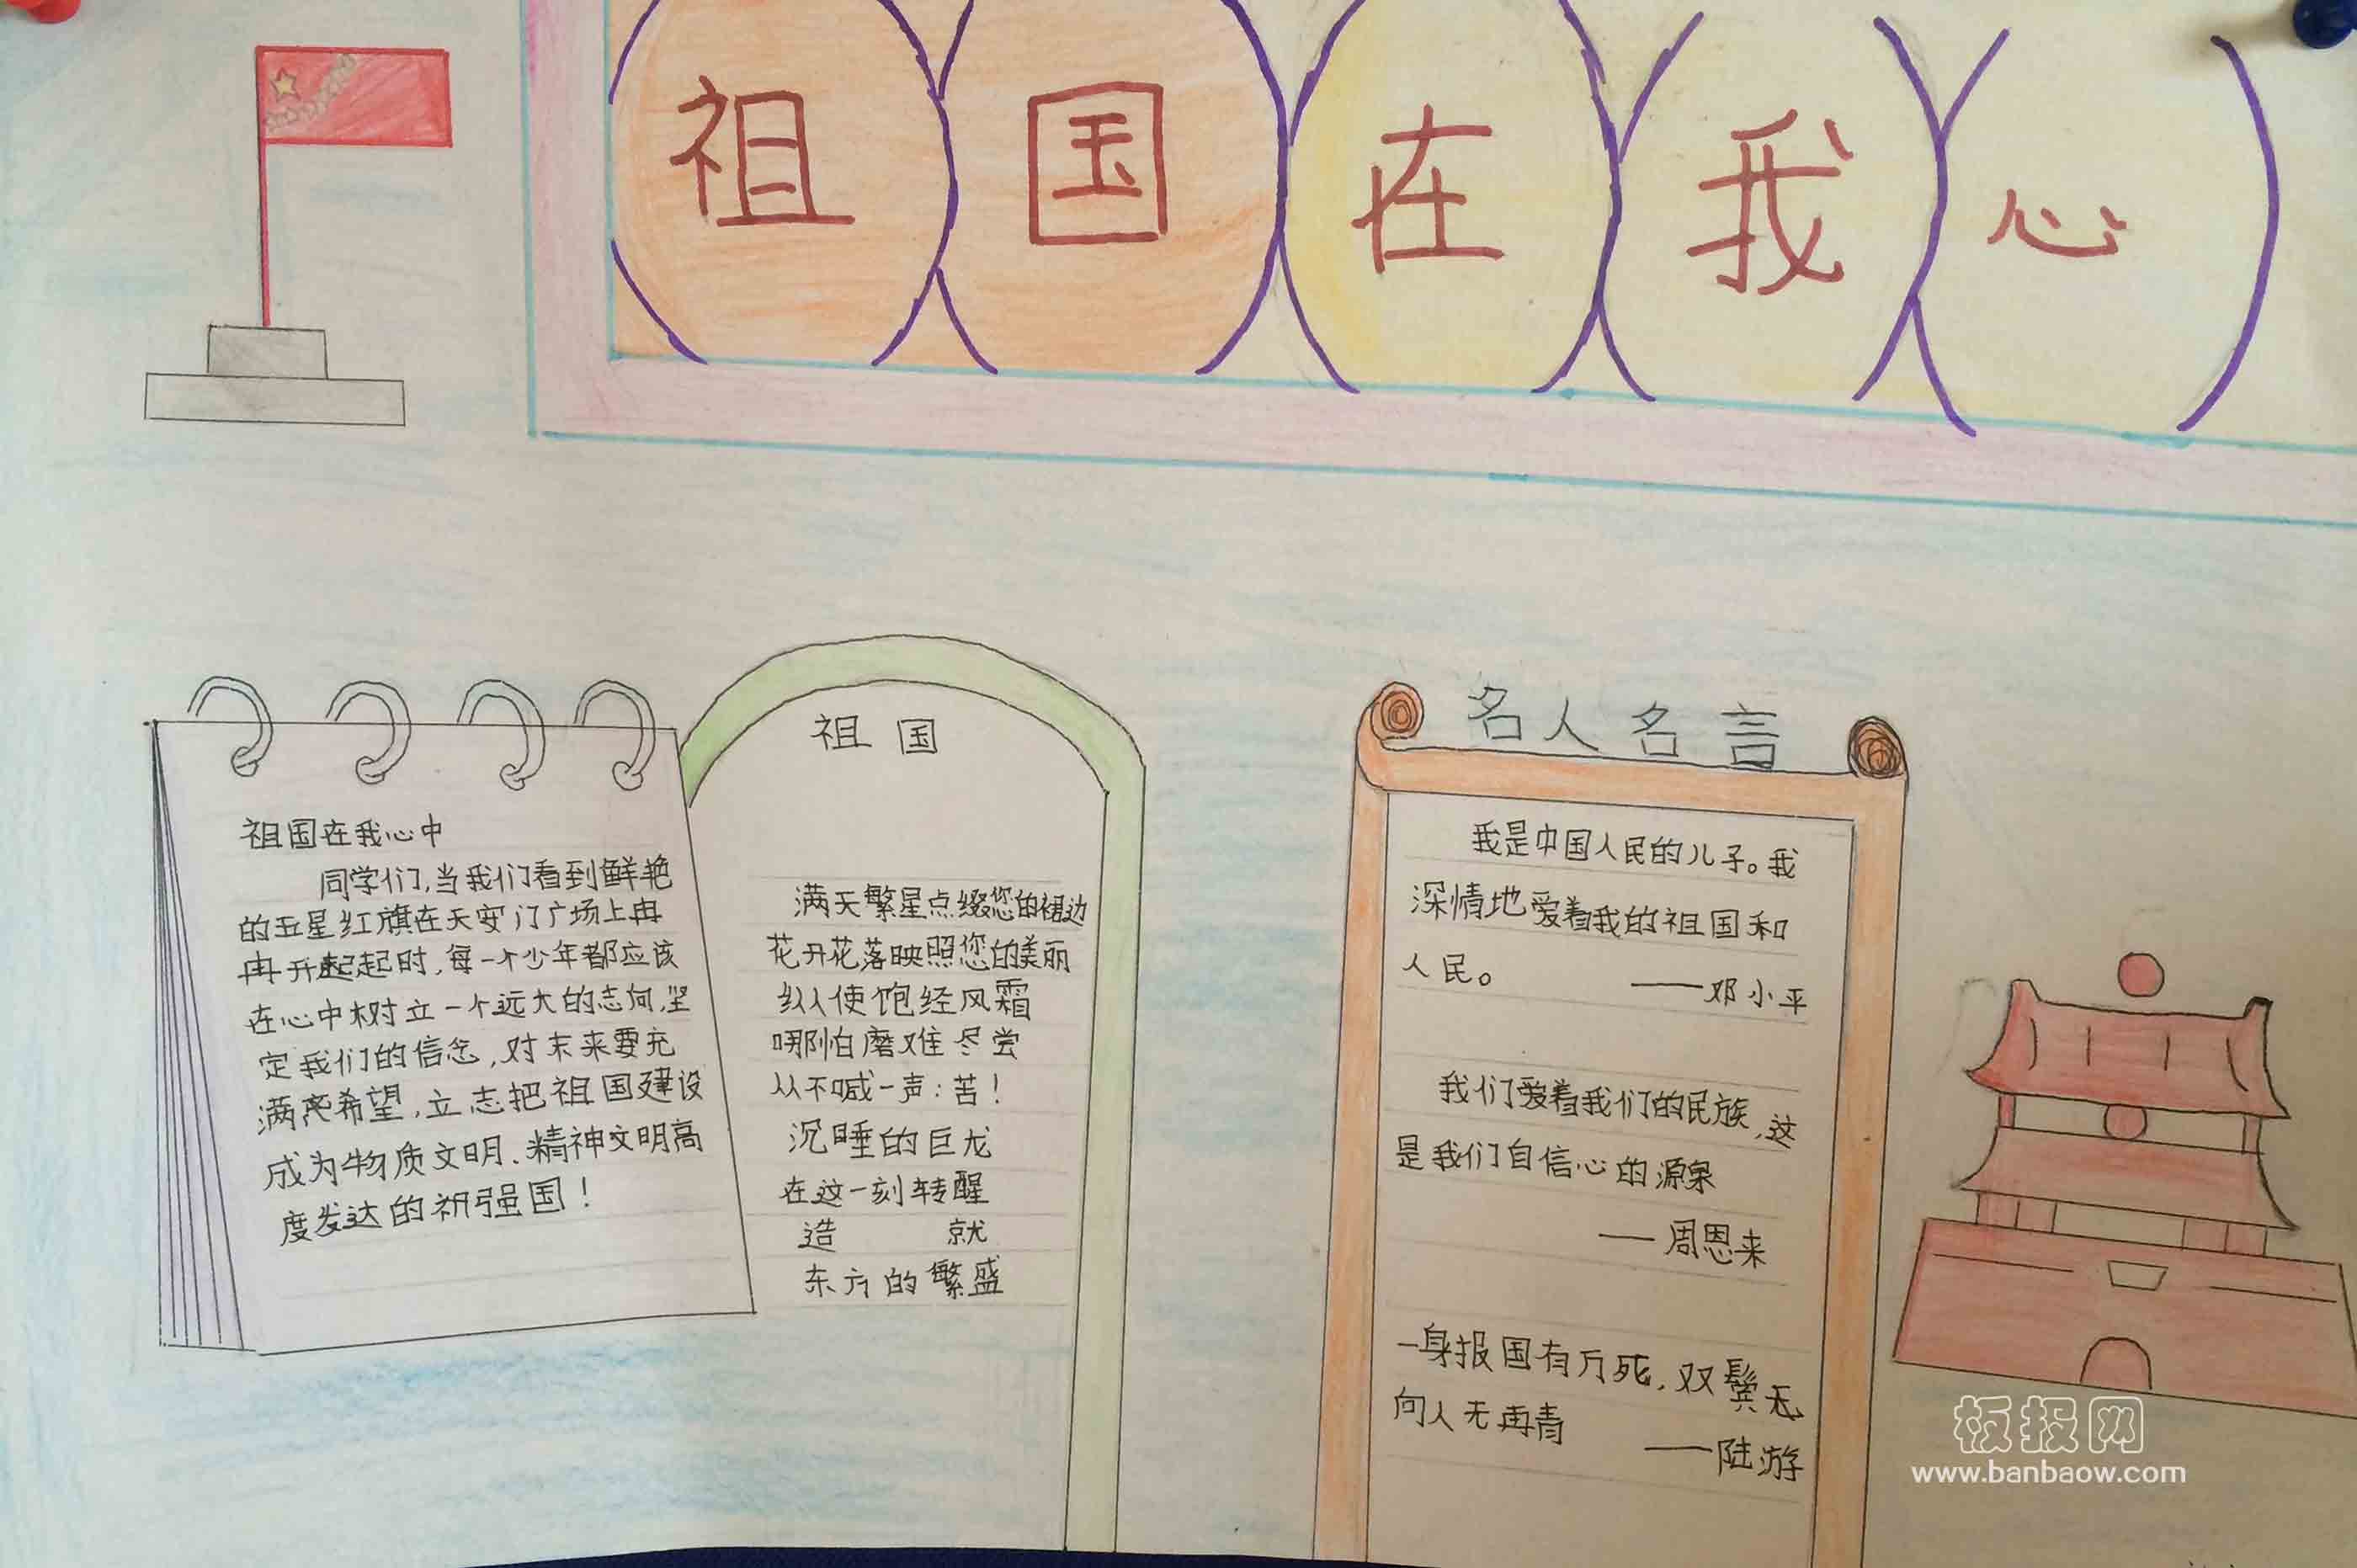 祖国在我心
祖国在我心中
同学们,当我们看到鲜艳
的五星红旗在天安门广场上冉
冉升起起时,每一个少年都应该
在心中树立一个远大的志向,坚
定我们的信念,对末来要充
满希望,立志把祖国建设
成为物质文明、精神文明高
度发达的强国!
祖国
满天繁星点缀您的裙边
花开花落映照您的美丽
纵使饱经风霜
哪怕磨难尽尝
从不喊一声:苦!
沉睡的巨龙
在这一刻转醒
造 就
东方的繁盛
名人名言
我是中国人民的儿子。我
深情地爱着我的祖国和
人民。
——邓小平
我们爱着我们的民族,这
是我们自信心的源泉
——周恩来
一身报国有万死,双鬓无
向人无再青
——陆游
板报网
www.banbaow.com